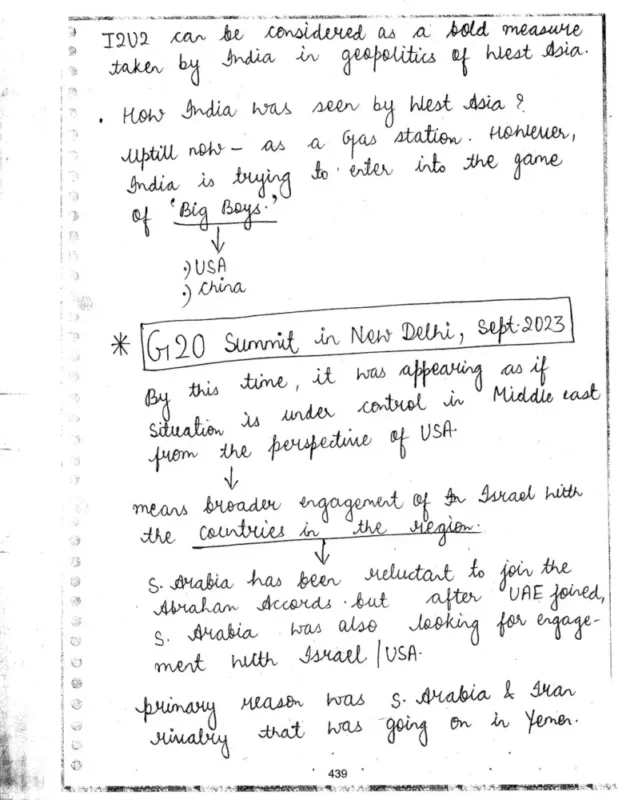 I2U2 can be considered as a bold measure
taken by India in geopolitics of West Asia.
• How India was seen by West Asia?
Uptill now – as a Gas station. However,
India is trying to enter into the game
of 'Big Boys.'
↓
·) USA
·) China
* G20 Summit in New Delhi, Sept. 2023
By this time, it was appearing as if
situation is under control in Middle east
from the perspective of USA.
↓
means broader engagement of Israel with
the countries in the region.
↓
S. Arabia has been reluctant to join the
Abraham Accords. but after UAE joined,
S. Arabia was also looking for engage-
ment with Israel/USA.
primary reason was S. Arabia & Iran
rivalry that was going on in Yemen.
439